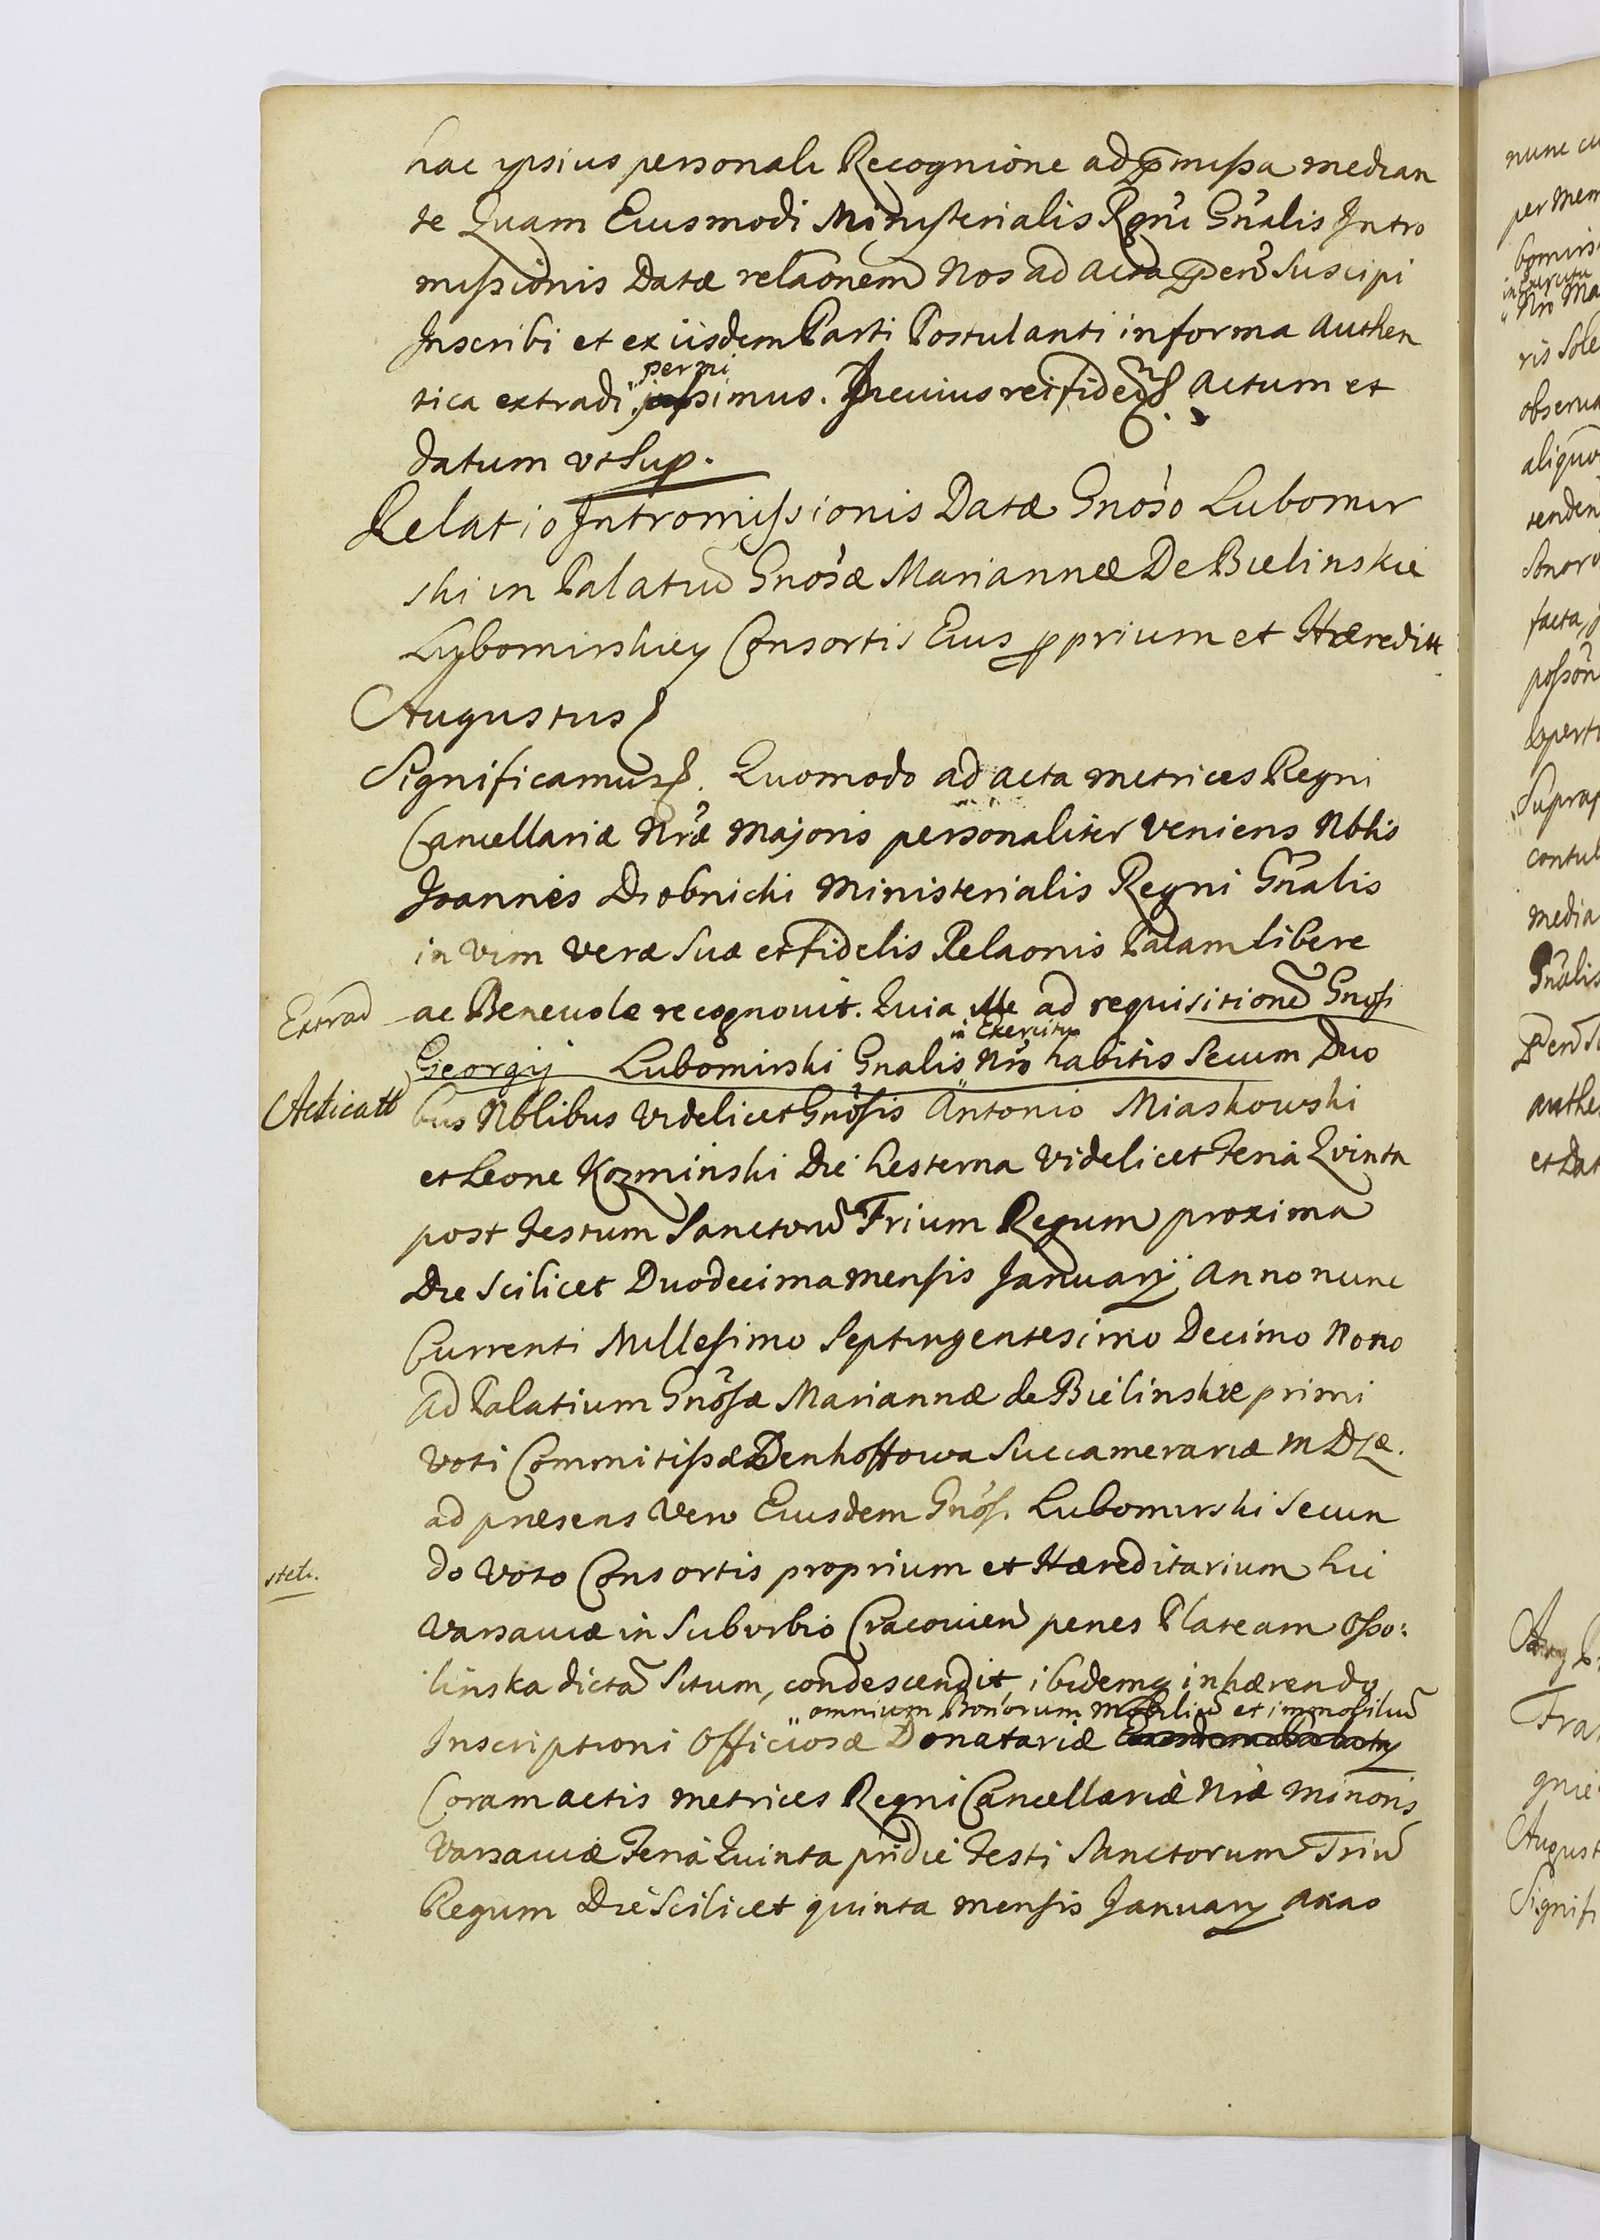 hac ipsius personali Recognione ad pmissa median
te Quam Eiusmodi Ministerialis Rgni Gnalis Intro
missionis Datæ relaonem Nos ad Acta pen Suscipi
Inscribi et ex iisdem Parti Postulanti in forma Authen
permi
tica extradi jussimus. In cuius rei fidem Actum et
datum vt Sup.
Relatio Intromissionis Datæ Gnoso Lubomir
ski in Palatiu Gnosæ Mariannæ De Bielinskie
Lubomirskiey Consortis Eius pprium et Hæreditt
Augustus
Significamus. Quomodo ad acta metrices Regni
Cancellariæ Nræ Majoris personaliter veniens Nblis
Joannes Drobnicki Ministerialis Regni Gnalis
in vim veræ suæ et fidelis Relaonis Palam libere
Extrad
ac Beneuole recognouit. Quia Ille ad requisitione Gnosi
in Exercitu
Georgij Lubomirski Gnalis Nro habitis Secum Duo
Acticatt
bus Nblibus videlicet Gnosis Antonio Miaskowski
et Leone Kozminski Die hesterna videlicet Feria Qvinta
post Festum Sanctoru Trium Regum proxima
Die Scilicet Duodecima mensis Januarij Anno nunc
Currenti Millesimo Septingentesimo Decimo Nono
ad Palatium Gnosæ Mariannæ de Bielinskie primi
voti Commitissæ Denhoffowa Succamerariæ M D Læ.
ad præsens vero Eiusdem Gnos. Lubomirski Secun
do voto Consortis proprium et Hæreditarium hic
stet.
Varsauiæ in Suburbio Cracouien penes Plateam Osso:
linska dicta Situm, condescendit, ibidemq inhærendo
omnium Bonorum Mobiliu et immobiliu
Inscriptioni Officiosæ Donatariæ
Coram actis metrices Regni Cancellariæ Nræ minoris
Varsauiæ Feria Quinta pridie Festi Sanctorum Triu
Regum Die Scilicet quinta mensis Januarij Anno
nunc
per
ris Sole
observa
aliquo
facta,
Supra
contul
media
Gnalis
authe
et Dat
Fra
August
Signifi